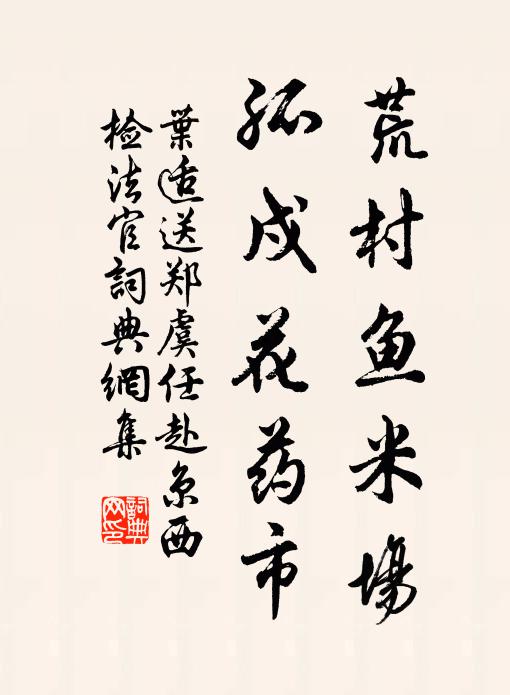 荒村鱼米場
孤戍花药市
葉适送郑虞任赴京西
检法官詞典網集
詞典网印